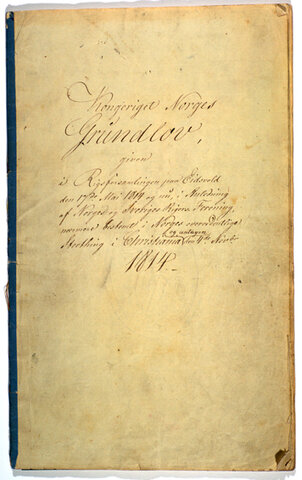 Kongeriget Norges
Grundlov,
given
i Rigsforsamlingen paa Eidsvold
den 17de Mai 1814 og nu, i Anledning
af Norges og Sveriges Rigers Forening,
nærmere bestemt i Norges overordentlige
og antagen
Storthing i Christiania den 4de Novbr
1814